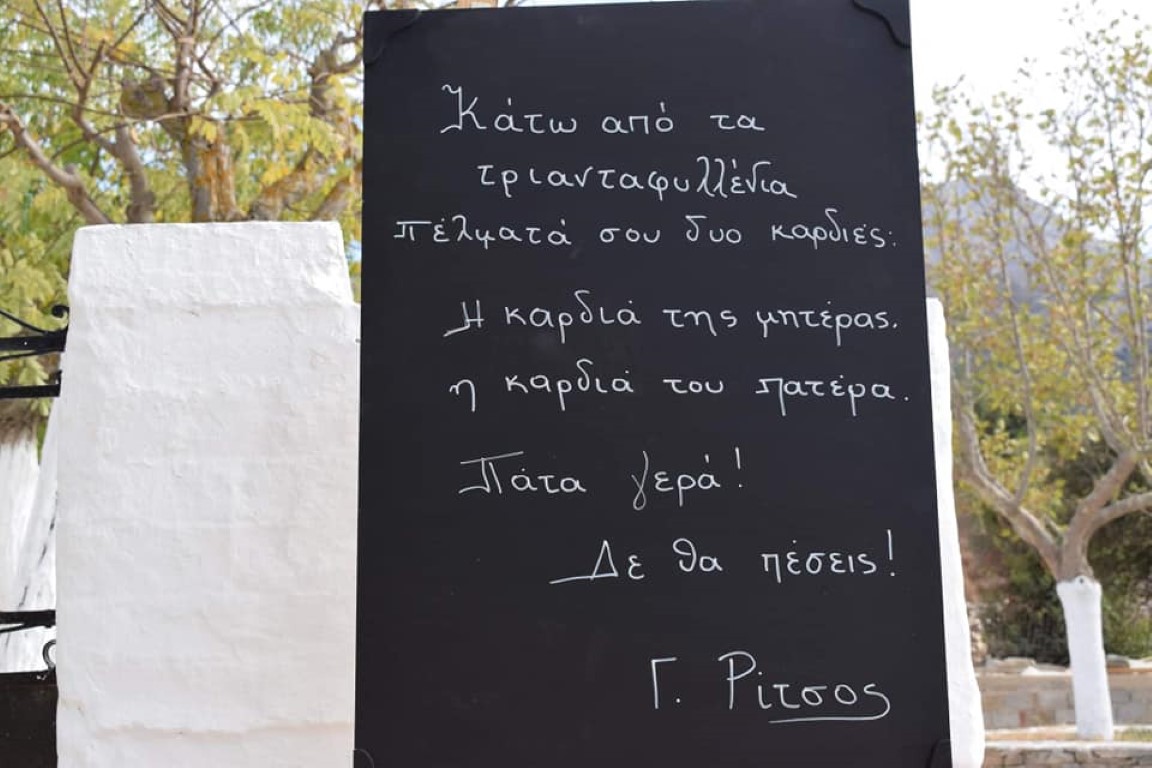 Κάτω από τα
τριανταφυλλένια
πέλματά σου δυο καρδιές:
Η καρδιά της μητέρας.
η καρδιά του πατέρα.
Πάτα γερά!
Δε θα πέσεις!
Γ. Ρίτσος